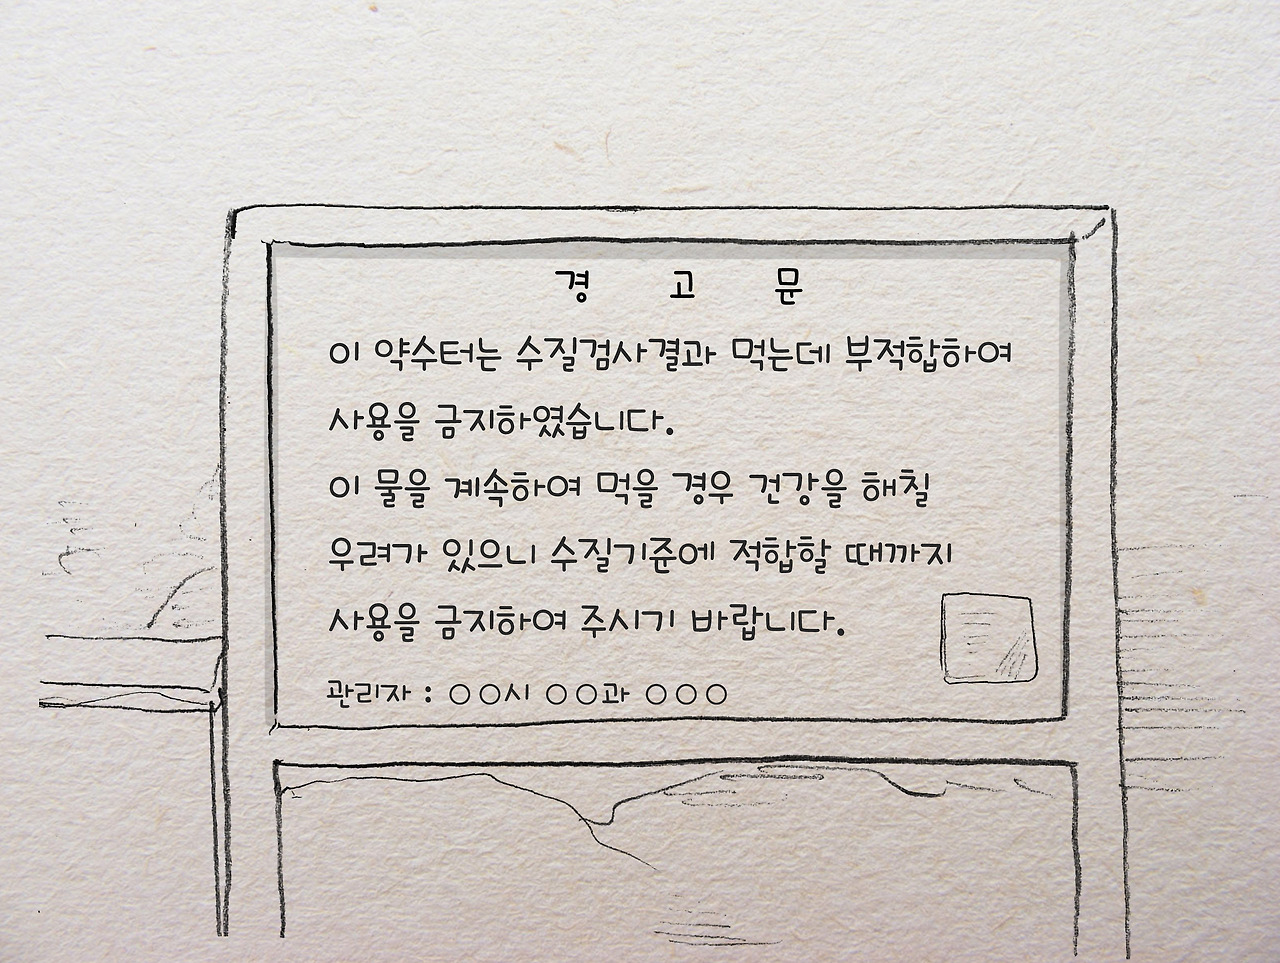 경 고 문
이 약수터는 수질검사결과 먹는데 부적합하여
사용을 금지하였습니다.
이 물을 계속하여 먹을 경우 건강을 해칠
우려가 있으니 수질기준에 적합할 때까지
사용을 금지하여 주시기 바랍니다.
관리자 : ○○시 ○○과 ○○○